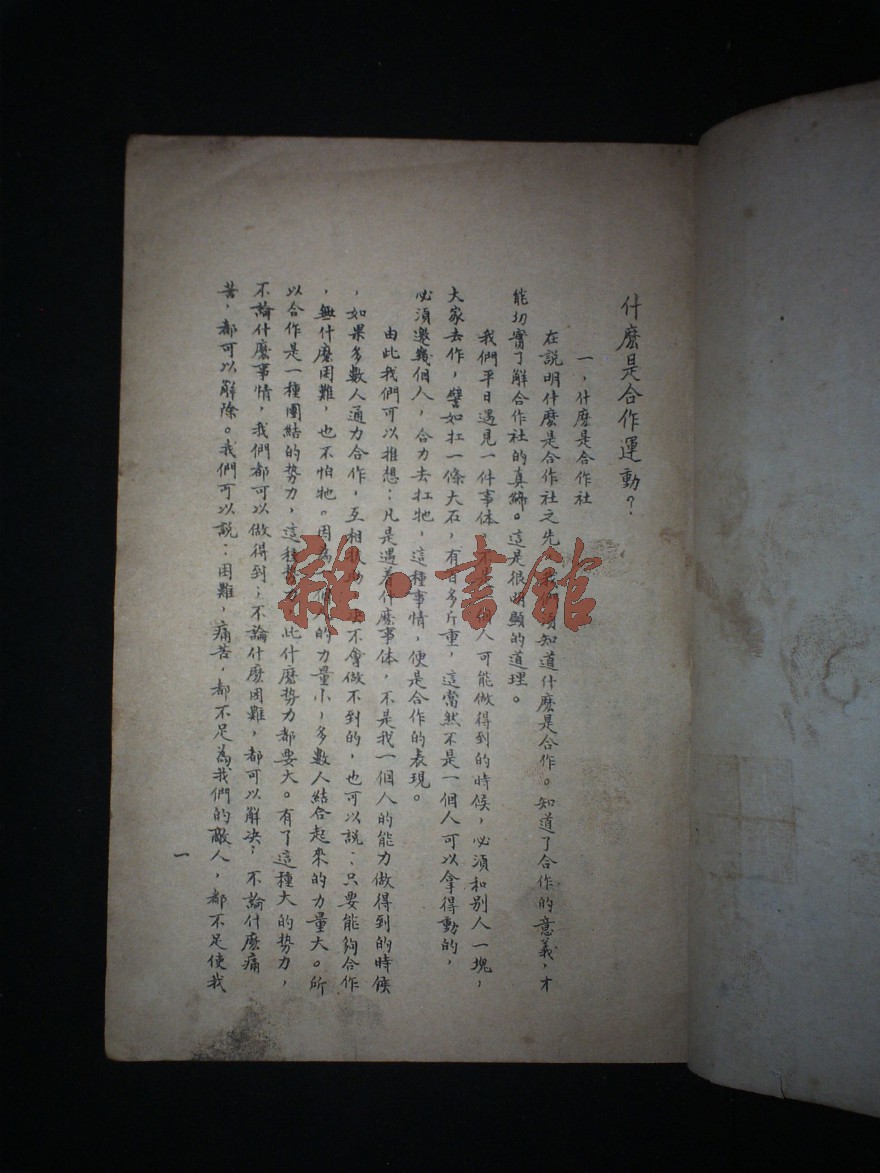 什麽是合作運動？
一，什麽是合作社
在説明什麽是合作社之先，我們須知道什麽是合作。知道了合作的意義，才
能切實了解合作社的真締。這是很明顯的道理。
我們平日遇見一件事体，不是一個人可能做得到的時候，必須和别人一塊，
大家去作，譬如扛一條大石，有百多斤重，這當然不是一個人可以拿得動的，
必須邀幾個人，合力去扛牠，這種事情，便是合作的表現。
由此我們可以推想：凡是遇着什麽事体，不是我一個人的能力做得到的時候
，如果多數人通力合作，互相扶 不會做不到的，也可以説：只要能夠合作
，無什麽困難，也不怕牠。因爲 的力量小，多數人結合起來的力量大。所
以合作是一種團結的势力，這種势力，比什麽势力都要大。有了這種大的势力，
不論什麽事情，我們都可以做得到；不論什麽困難，都可以解决；不論什麽痛
苦，都可以解除。我們可以説：困難，痛苦，都不足為我們的敵人，都不足使我
一
雜·書館